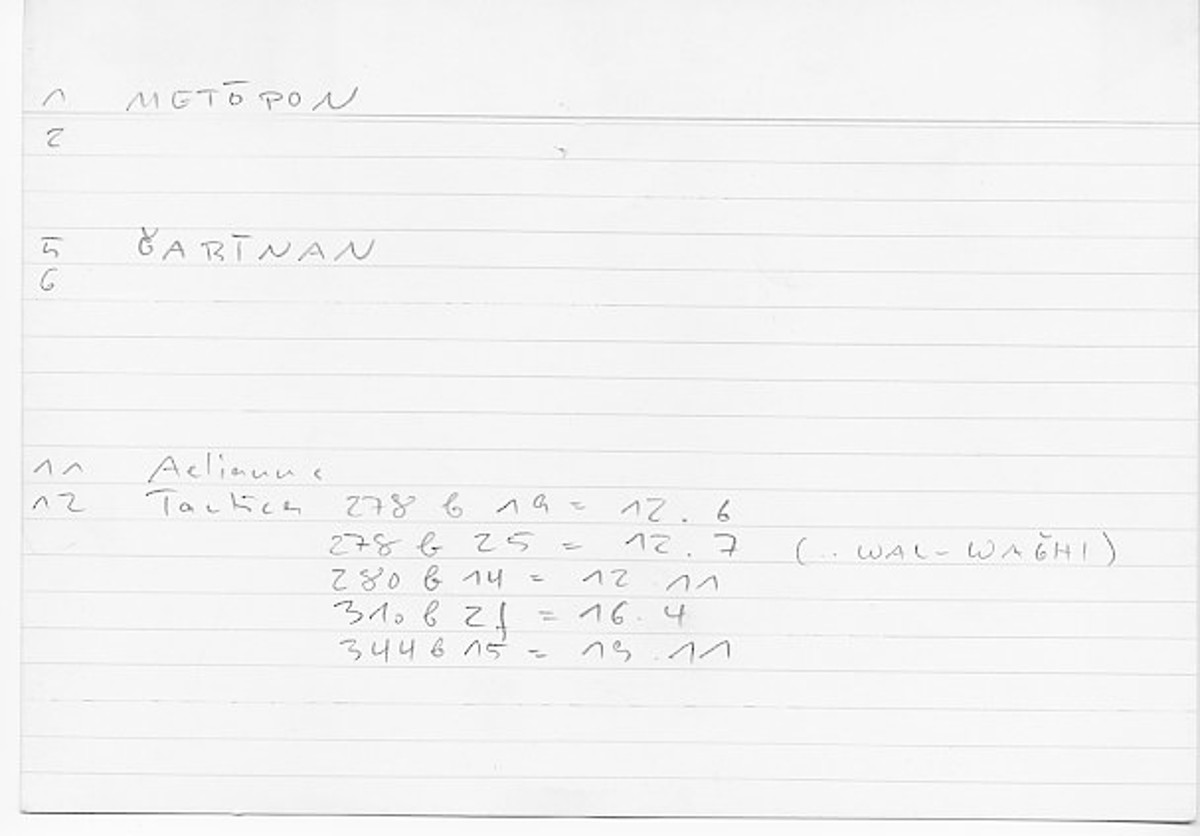 1 METŌPON
2
5 ǦABĪNAN
6
11 Aelianus
12 Tactica 278 b 19 = 12. 6
278 b 25 = 12. 7 (.. WAL-WAǦHI)
280 b 14 = 12 .11
310 b 2f = 16. 4
344 b 15 = 19 .11